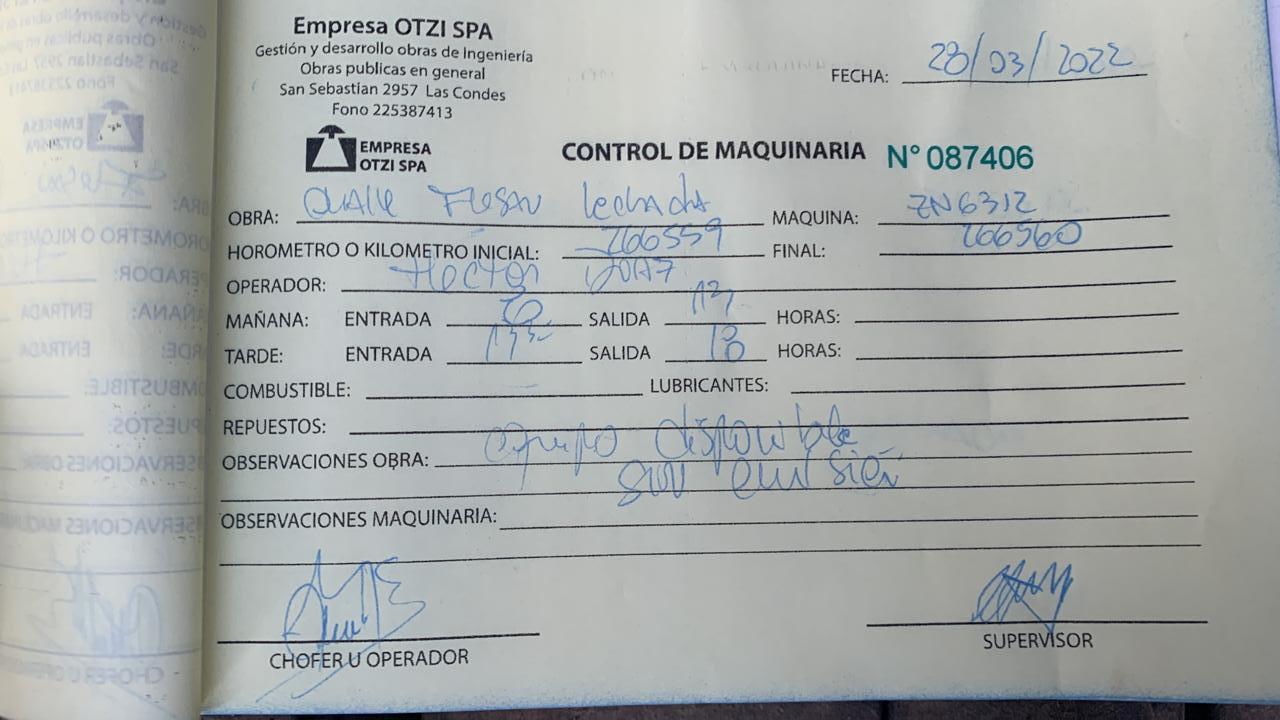 Empresa OTZI SPA
Gestión y desarrollo obras de Ingeniería
Obras publicas en general
San Sebastian 2957 Las Condes
Fono 225387413
FECHA: 28/03/2022
EMPRESA
OTZI SPA
CONTROL DE MAQUINARIA N° 087406
OBRA: lechada MAQUINA: ZN6312
HOROMETRO O KILOMETRO INICIAL: 266559 FINAL: 266560
OPERADOR: Hector
MAÑANA: ENTRADA SALIDA HORAS:
TARDE: ENTRADA SALIDA 18 HORAS:
COMBUSTIBLE: LUBRICANTES:
REPUESTOS:
OBSERVACIONES OBRA: equipo disponible
sin emisión
OBSERVACIONES MAQUINARIA:
CHOFER U OPERADOR
SUPERVISOR